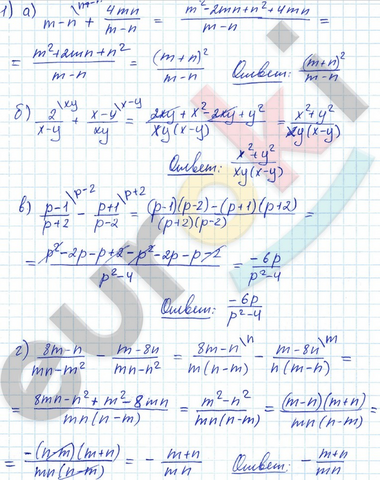 1) а) m-n \m-n + 4mn/(m-n) = (m²-2mn+n²+4mn)/(m-n) =
= (m²+2mn+n²)/(m-n) = (m+n)²/(m-n) Ответ: (m+n)²/(m-n)
б) 2/(x-y) \xy + (x-y)/xy \x-y = (2xy+x²-2xy+y²)/(xy(x-y)) = (x²+y²)/(xy(x-y))
Ответ: (x²+y²)/(xy(x-y))
в) (p-1)/(p+2) \p-2 - (p+1)/(p-2) \p+2 = ((p-1)(p-2)-(p+1)(p+2))/((p+2)(p-2)) =
= (p²-2p-p+2-p²-2p-p-2)/(p²-4) = -6p/(p²-4)
Ответ: -6p/(p²-4)
г) (8m-n)/(mn-m²) - (m-8n)/(mn-n²) = (8m-n)/(m(n-m)) \n - (m-8n)/(n(m-n)) \m =
= (8mn-n²+m²-8mn)/(mn(n-m)) = (m²-n²)/(mn(n-m)) = ((m-n)(m+n))/(mn(n-m)) =
= -(n-m)(m+n)/(mn(n-m)) = - (m+n)/mn Ответ: - (m+n)/mn
euroki